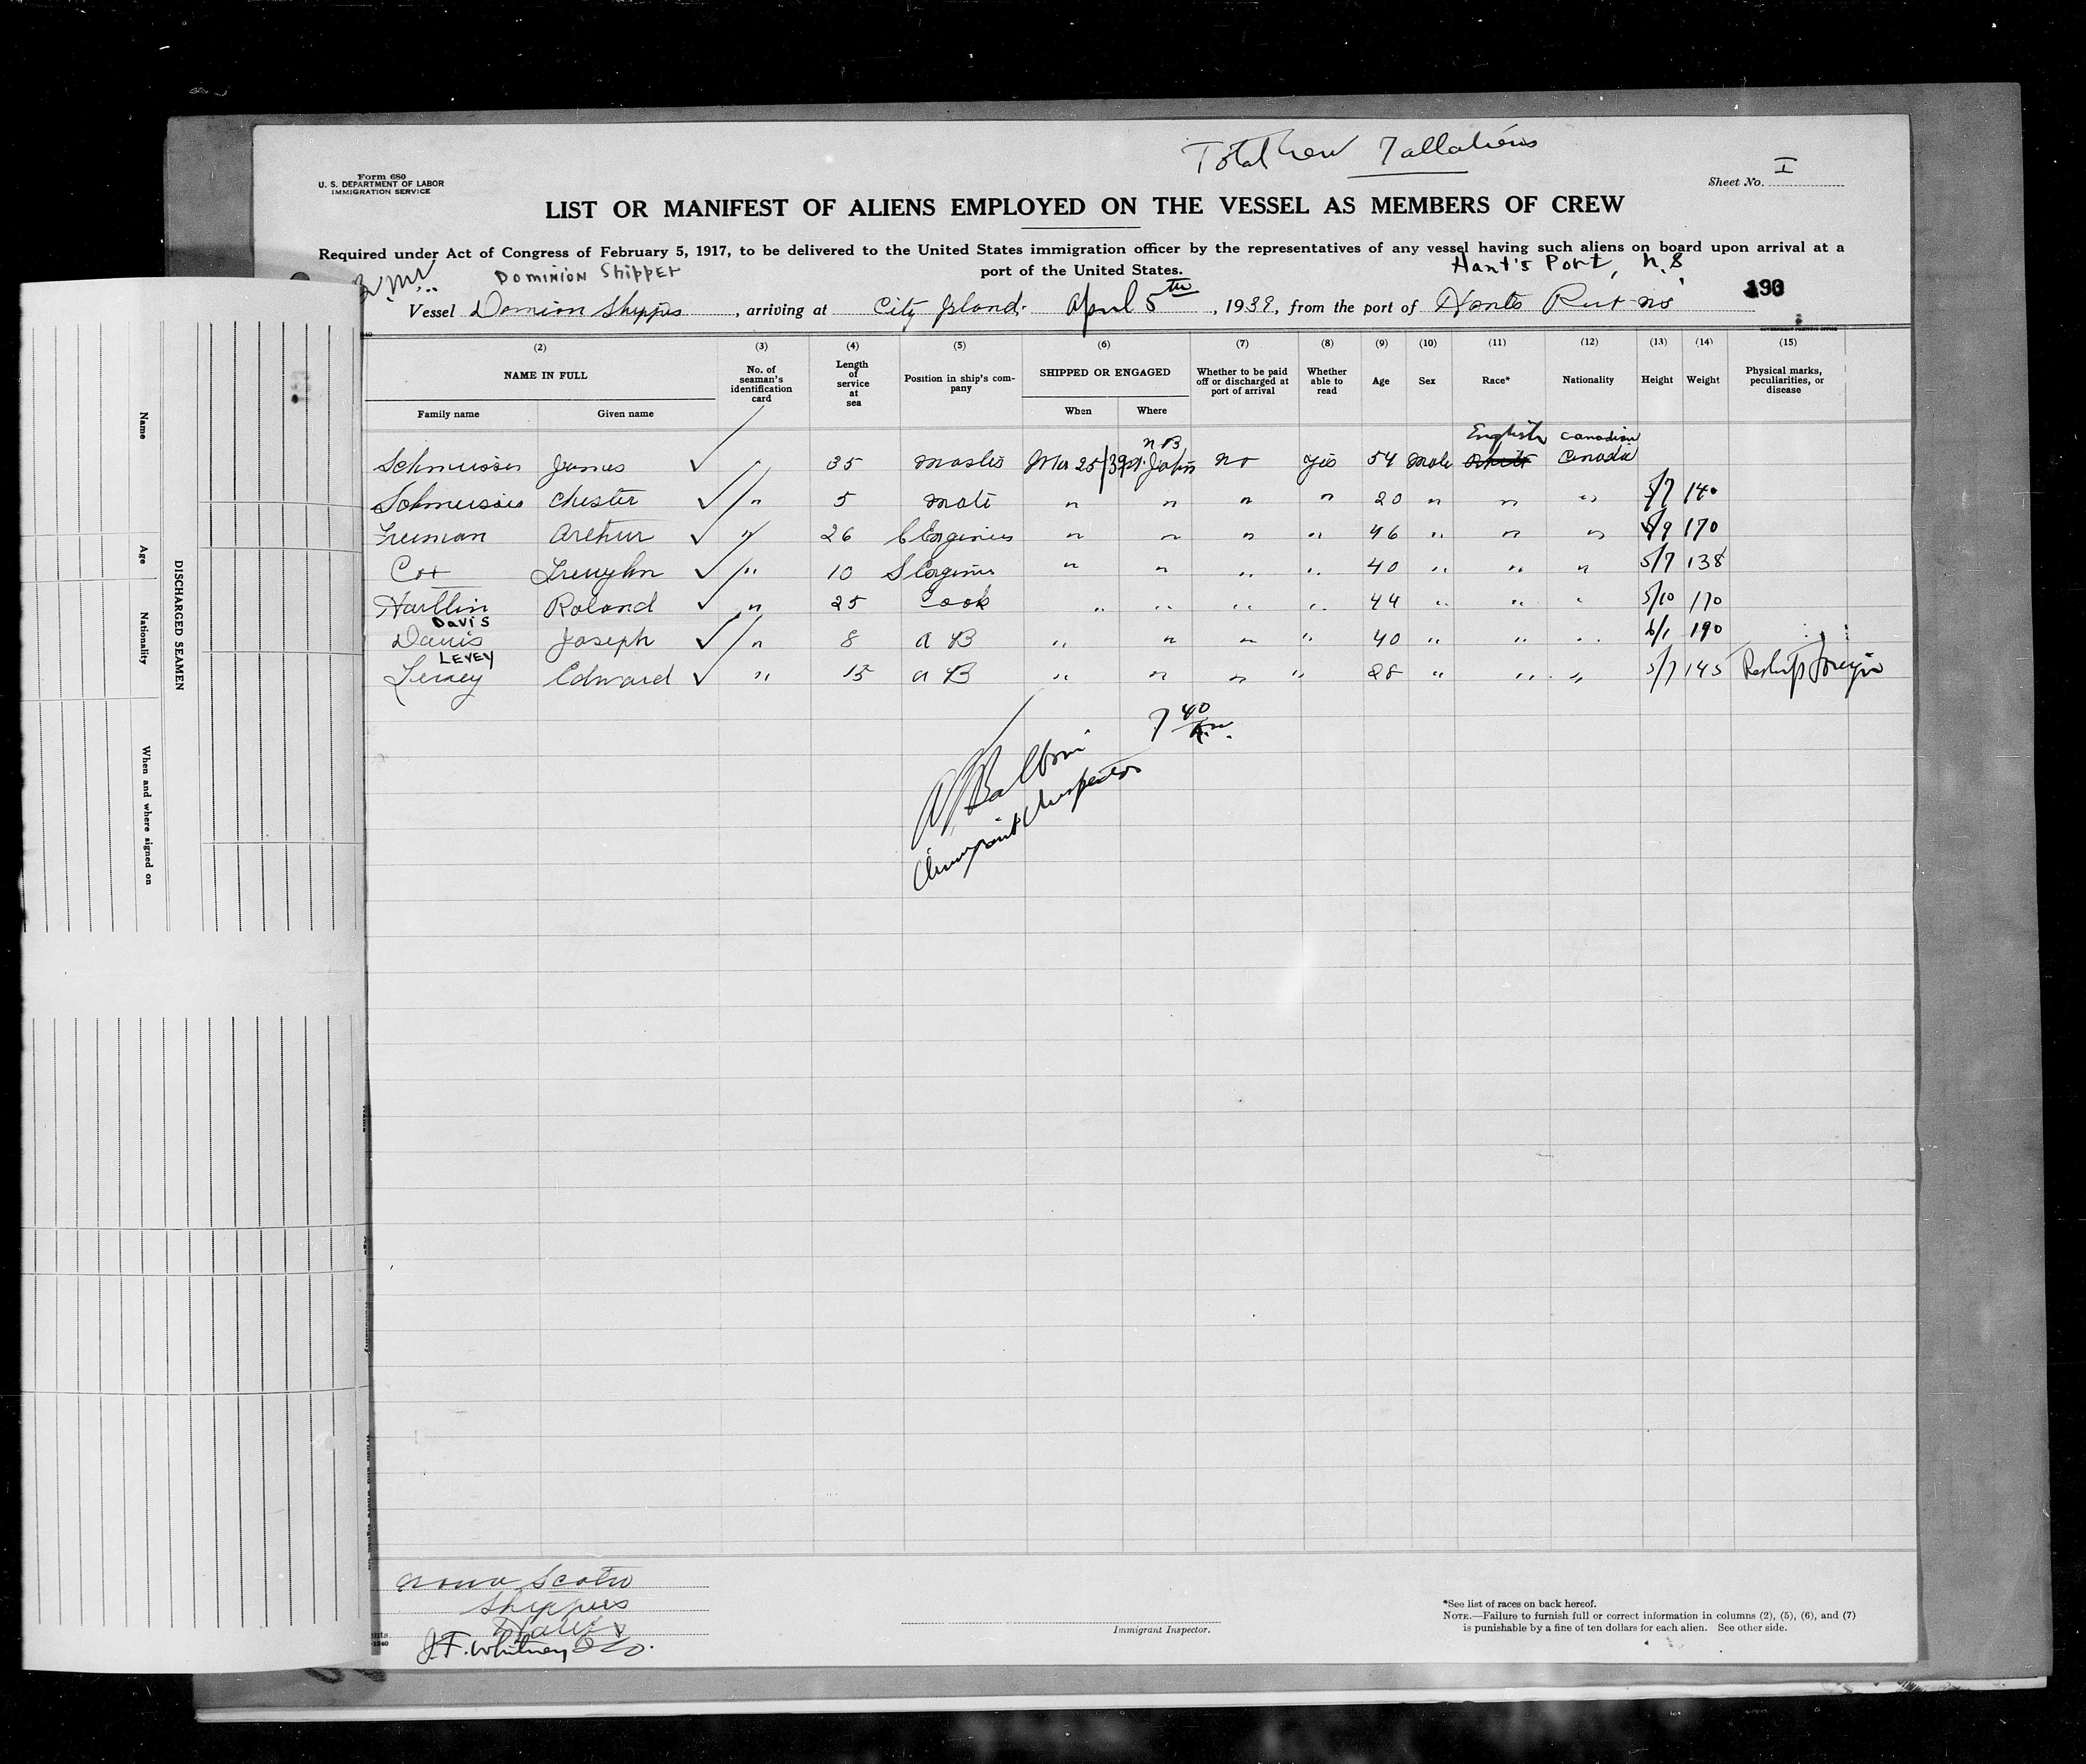 Total Crew 7 all aliens
Form 680
U. S. DEPARTMENT OF LABOR
IMMIGRATION SERVICE
Sheet No. I
LIST OR MANIFEST OF ALIENS EMPLOYED ON THE VESSEL AS MEMBERS OF CREW
Required under Act of Congress of February 5, 1917, to be delivered to the United States immigration officer by the representatives of any vessel having such aliens on board upon arrival at a
port of the United States.
Dominion Shipper Hant's Port, N.S
Vessel Domion Shipper, arriving at City Island. April 5th, 1939, from the port of Hants Port ns 190
(2) (3) (4) (5) (6) (7) (8) (9) (10) (11) (12) (13) (14) (15)
NAME IN FULL No. of seaman's identification card Length of service at sea Position in ship's company SHIPPED OR ENGAGED Whether to be paid off or discharged at port of arrival Whether able to read Age Sex Race* Nationality Height Weight Physical marks, peculiarities, or disease
Family name Given name When Where
NB English Canadian
Schmeisser James ✓ 35 Master Mar 25/39 St. John no yes 54 Male White Canada
Schmeisser Chester ✓ " 5 Mate " " " " 20 " " " 5/7 140
Freeman Arthur ✓ " 26 C Engineer " " " " 46 " " " 5/9 170
Cox ✓ " 10 S Engineer " " " " 40 " " " 5/7 138
Roland ✓ " 25 Cook " " " " 44 " " " 5/10 170
DAVIS
Davis Joseph ✓ " 8 A B " " " " 40 " " " 6/1 190
LEVEY
Edward ✓ " 15 A B " " " " 28 " " " 5/7 145 Reship foreign
7 40 A.M.
Immigrant Inspector
Nova Scotia
Shippers
J.F. Whitney & Co.
Immigrant Inspector.
*See list of races on back hereof.
NOTE.—Failure to furnish full or correct information in columns (2), (5), (6), and (7)
is punishable by a fine of ten dollars for each alien. See other side.
DISCHARGED SEAMEN
Name Age Nationality When and where signed on